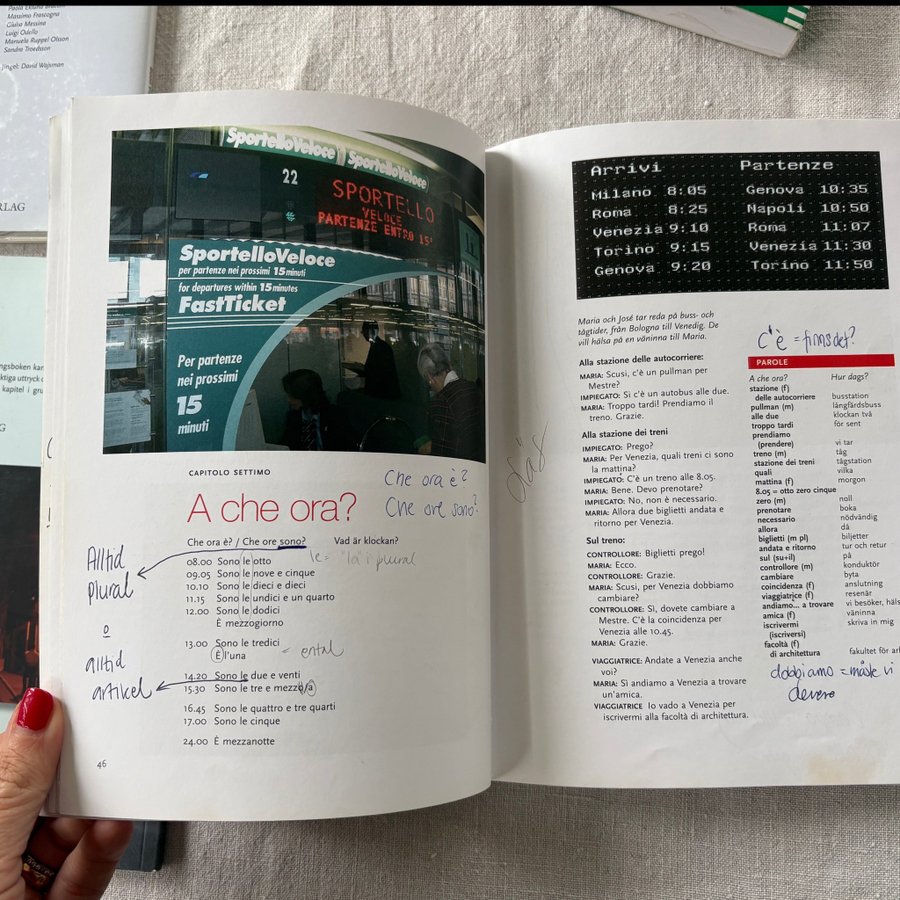 Paola Ekblad
Massimo Frascogna
Giulia Messina
Luigi Odello
Manuela Ruppel Olsson
Sandra Troedsson
David Wajsman
RLAG
ngsboken kan
ktiga uttryck
kapitel i gru
SportelloVeloce SportelloVeloce
22
SPORTELLO
VELOCE
PARTENZE ENTRO 15'
SportelloVeloce
per partenze nei prossimi 15 minuti
for departures within 15 minutes
FastTicket
Per partenze
nei prossimi
15
minuti
CAPITOLO SETTIMO
A che ora?
Che ora è?
Che ore sono?
Che ora è? / Che ore sono? Vad är klockan?
le = "la" i plural
08.00 Sono le otto
09.05 Sono le nove e cinque
10.10 Sono le dieci e dieci
11.15 Sono le undici e un quarto
12.00 Sono le dodici
È mezzogiorno
13.00 Sono le tredici
È l'una
ental
14.20 Sono le due e venti
15.30 Sono le tre e mezzo/a
16.45 Sono le quattro e tre quarti
17.00 Sono le cinque
24.00 È mezzanotte
Alltid
plural
o
alltid
artikel
46
Arrivi Partenze
Milano 8:05 Genova 10:35
Roma 8:25 Napoli 10:50
Venezia 9:10 Roma 11:07
Torino 9:15 Venezia 11:30
Genova 9:20 Torino 11:50
Maria och José tar reda på buss- och
tågtider, från Bologna till Venedig. De
vill hälsa på en väninna till Maria.
Alla stazione delle autocorriere:
MARIA: Scusi, c'è un pullman per
Mestre?
IMPIEGATO: Si c'è un autobus alle due.
MARIA: Troppo tardi! Prendiamo il
treno. Grazie.
Alla stazione dei treni
IMPIEGATO: Prego?
MARIA: Per Venezia, quali treni ci sono
la mattina?
IMPIEGATO: C'è un treno alle 8.05.
MARIA: Bene. Devo prenotare?
IMPIEGATO: No, non è necessario.
MARIA: Allora due biglietti andata e
ritorno per Venezia.
Sul treno:
CONTROLLORE: Biglietti prego!
MARIA: Ecco.
CONTROLLORE: Grazie.
MARIA: Scusi, per Venezia dobbiamo
cambiare?
CONTROLLORE: Sì, dovete cambiare a
Mestre. C'è la coincidenza per
Venezia alle 10.45.
MARIA: Grazie.
VIAGGIATRICE: Andate a Venezia anche
voi?
MARIA: Sì andiamo a Venezia a trovare
un'amica.
VIAGGIATRICE Io vado a Venezia per
iscrivermi alla facoltà di architettura.
c'è = finns det?
PAROLE
A che ora? Hur dags?
stazione (f)
delle autocorriere busstation
pullman (m) långfärdsbuss
alle due klockan två
troppo tardi för sent
prendiamo
(prendere) vi tar
treno (m) tåg
stazione dei treni tågstation
quali vilka
mattina (f) morgon
8.05 = otto zero cinque
zero (m) noll
prenotare boka
necessario nödvändig
allora då
biglietti (m pl) biljetter
andata e ritorno tur och retur
sul (su+il) på
controllore (m) konduktör
cambiare byta
coincidenza (f) anslutning
viaggiatrice (f) resenär
andiamo... a trovare vi besöker, häls
amica (f) väninna
iscrivermi skriva in mig
(iscriversi)
facoltà (f)
di architettura fakultet för ar
dobbiamo = måste vi
devere